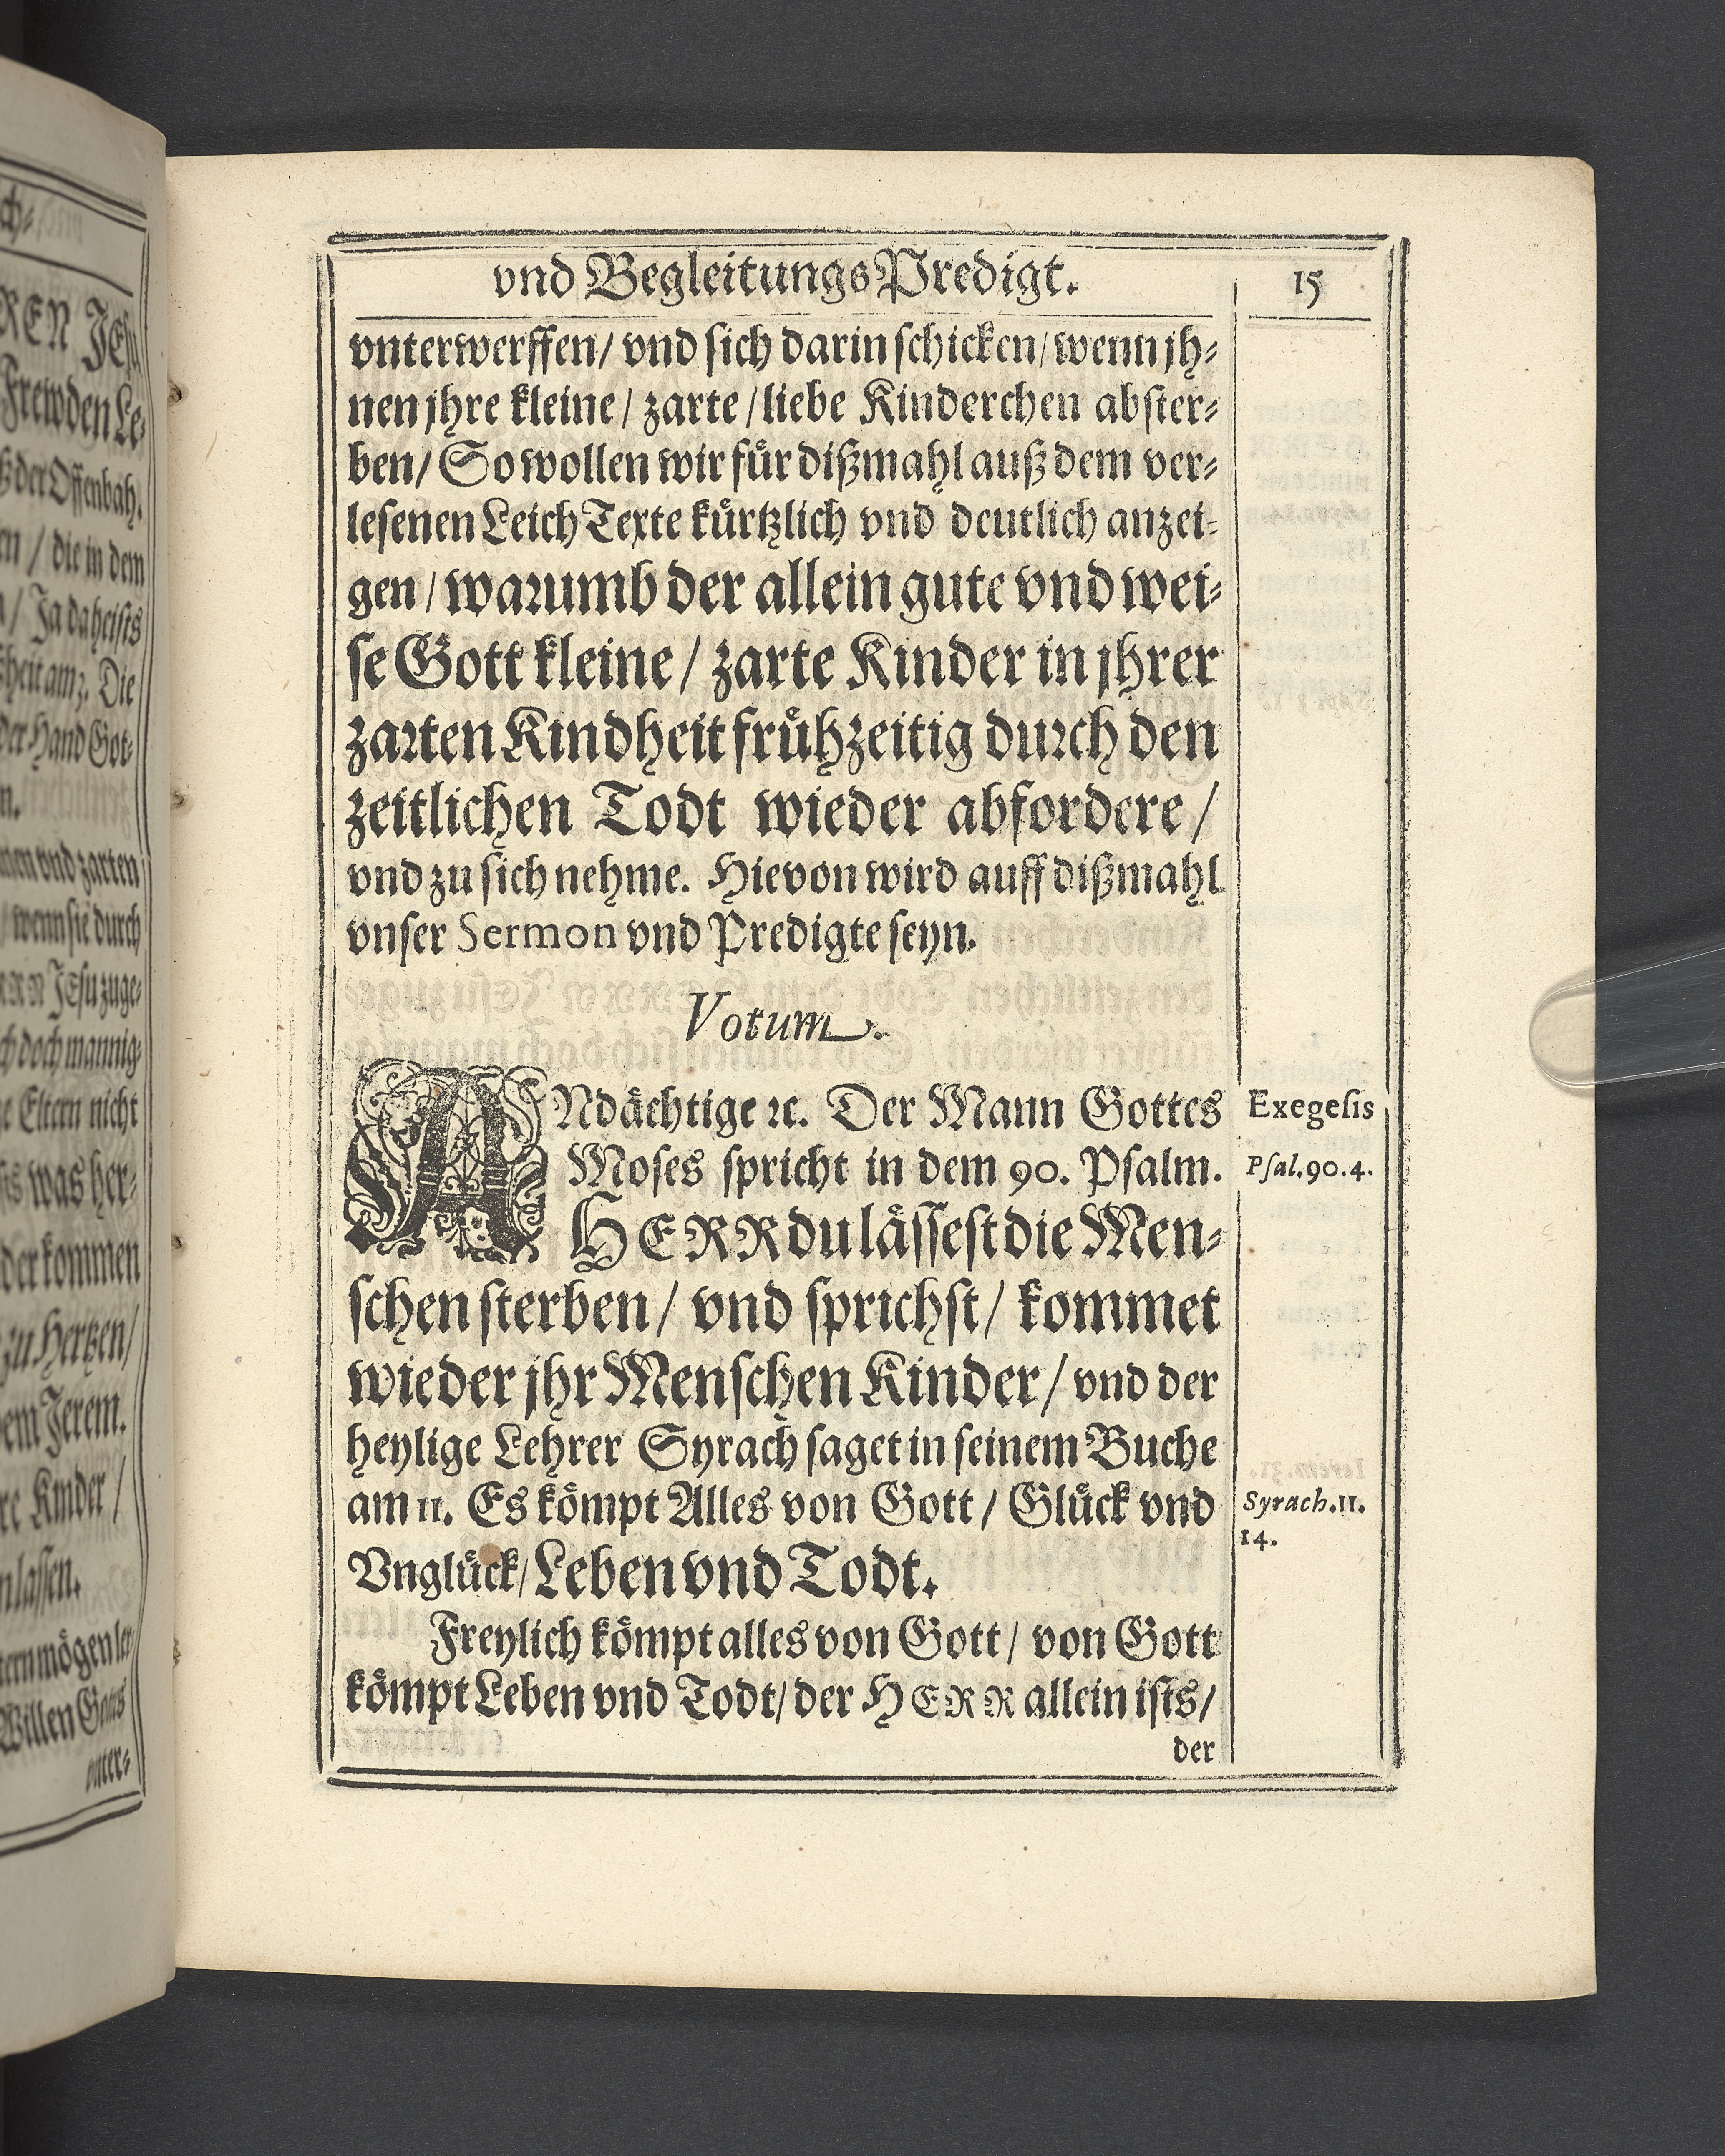 vnd BegleitungsPredigt.
15
vnterwerffen/ vnd sich darin schicken/ wenn jh⸗
nen jhre kleine/ zarte/ liebe Kinderchen abster⸗
ben/ So wollen wir fuͤr dißmahl auß dem ver⸗
lesenen Leich Texte kuͤrtzlich vnd deutlich anzei⸗
gen/ warumb der allein gute vnd wei⸗
se Gott kleine/ zarte Kinder in jhrer
zarten Kindheit fruͤhzeitig durch den
zeitlichen Todt wieder abfordere/
vnd zu sich nehme. Hievon wird auff dißmahl
vnser Sermon vnd Predigte seyn.
Votum.
ANdaͤchtige ꝛc. Der Mann Gottes
Exegesis
Moses spricht in dem 90. Psalm.
Psal.90.4.
HERR du laͤssest die Men⸗
schen sterben/ vnd sprichst/ kommet
wieder jhr Menschen Kinder/ vnd der
heylige Lehrer Syrach saget in seinem Buche
am 11. Es koͤmpt Alles von Gott/ Gluͤck vnd
Syrach.11.
14.
Vngluͤck/ Leben vnd Todt.
Freylich koͤmpt alles von Gott/ von Gott
koͤmpt Leben vnd Todt/ der HERR allein ists/
der